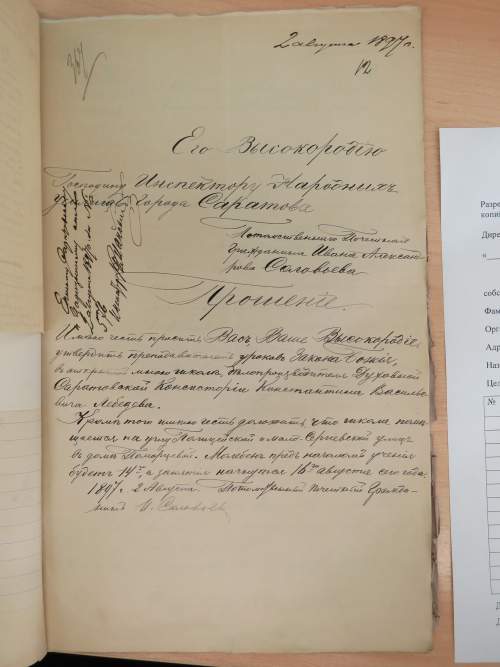 2 августа 1897 г.
12
Его Высокородію
Господину Инспектору Народныхъ
Города Саратова
Потомственнаго Почетнаго
Гражданина Ивана Алексан-
рова Соловьева
Прошеніе.
Имѣю честь просить Васъ Ваше Высокородіе,
утвердить преподавателемъ уроковъ Закона Божія,
въ открытой мною школѣ, дѣлопроизводителя Духовной
Саратовской Консисторіи Константина Василье-
вича Лебедева.
Кромѣ того имѣю честь доложить что школа помѣ-
щается, на углу Полицейской и мало-Сергіевской улицъ
въ домѣ Поморцевой. Молебенъ предъ началомъ ученія
будетъ 14го, а занятія начнутся 16го августа сего года
1897 г. 2 Августа. Потомственный почетный Гражда-
нинъ И. Соловьевъ
Разре
копи
Дире
«__
собс
Фам
Орг
Адр
Наз
Цел
№